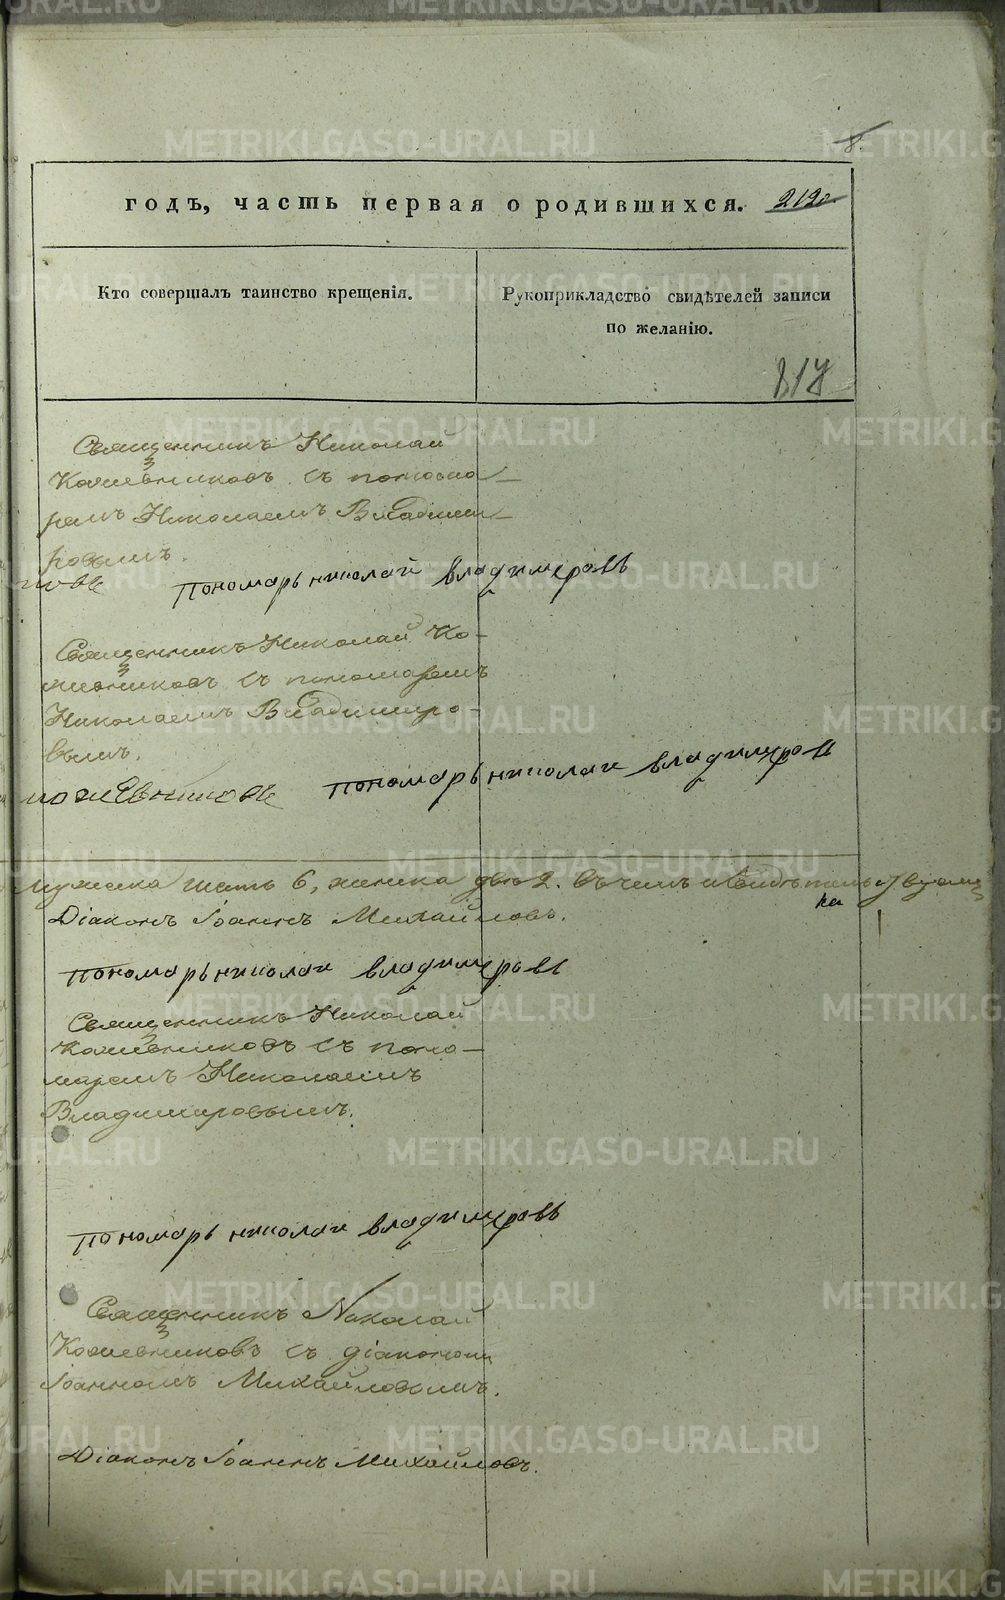 8.
годъ, часть первая о родившихся. 212о
Кто совершалъ таинство крещенія.
Рукоприкладство свидѣтелей записи
по желанію.
817
Священникъ Николай
Кожевниковъ съ понома-
ремъ Николаемъ Владими-
ровымъ.
Пономарь николай владимеровъ
Священникъ Николай Ко-
жевниковъ съ пономаремъ
Николаемъ Владимиро-
вымъ.
кожевниковъ пономарь николаи владимеровъ
мужеска шесть 6, женска двѣ 2. Въ чемъ и свидѣтельствуемъ
Діаконъ Іоаннъ Михайловъ.
пономарь николаи владимеровъ
Священникъ Николай
Кожевниковъ съ поно-
маремъ Николаемъ
Владимировымъ.
пономарь николаи владимеровъ
Священникъ Николай
Кожевниковъ съ діакономъ
Іоанномъ Михайловымъ.
Діаконъ Іоаннъ Михайловъ.
METRIKI.GASO-URAL.RU